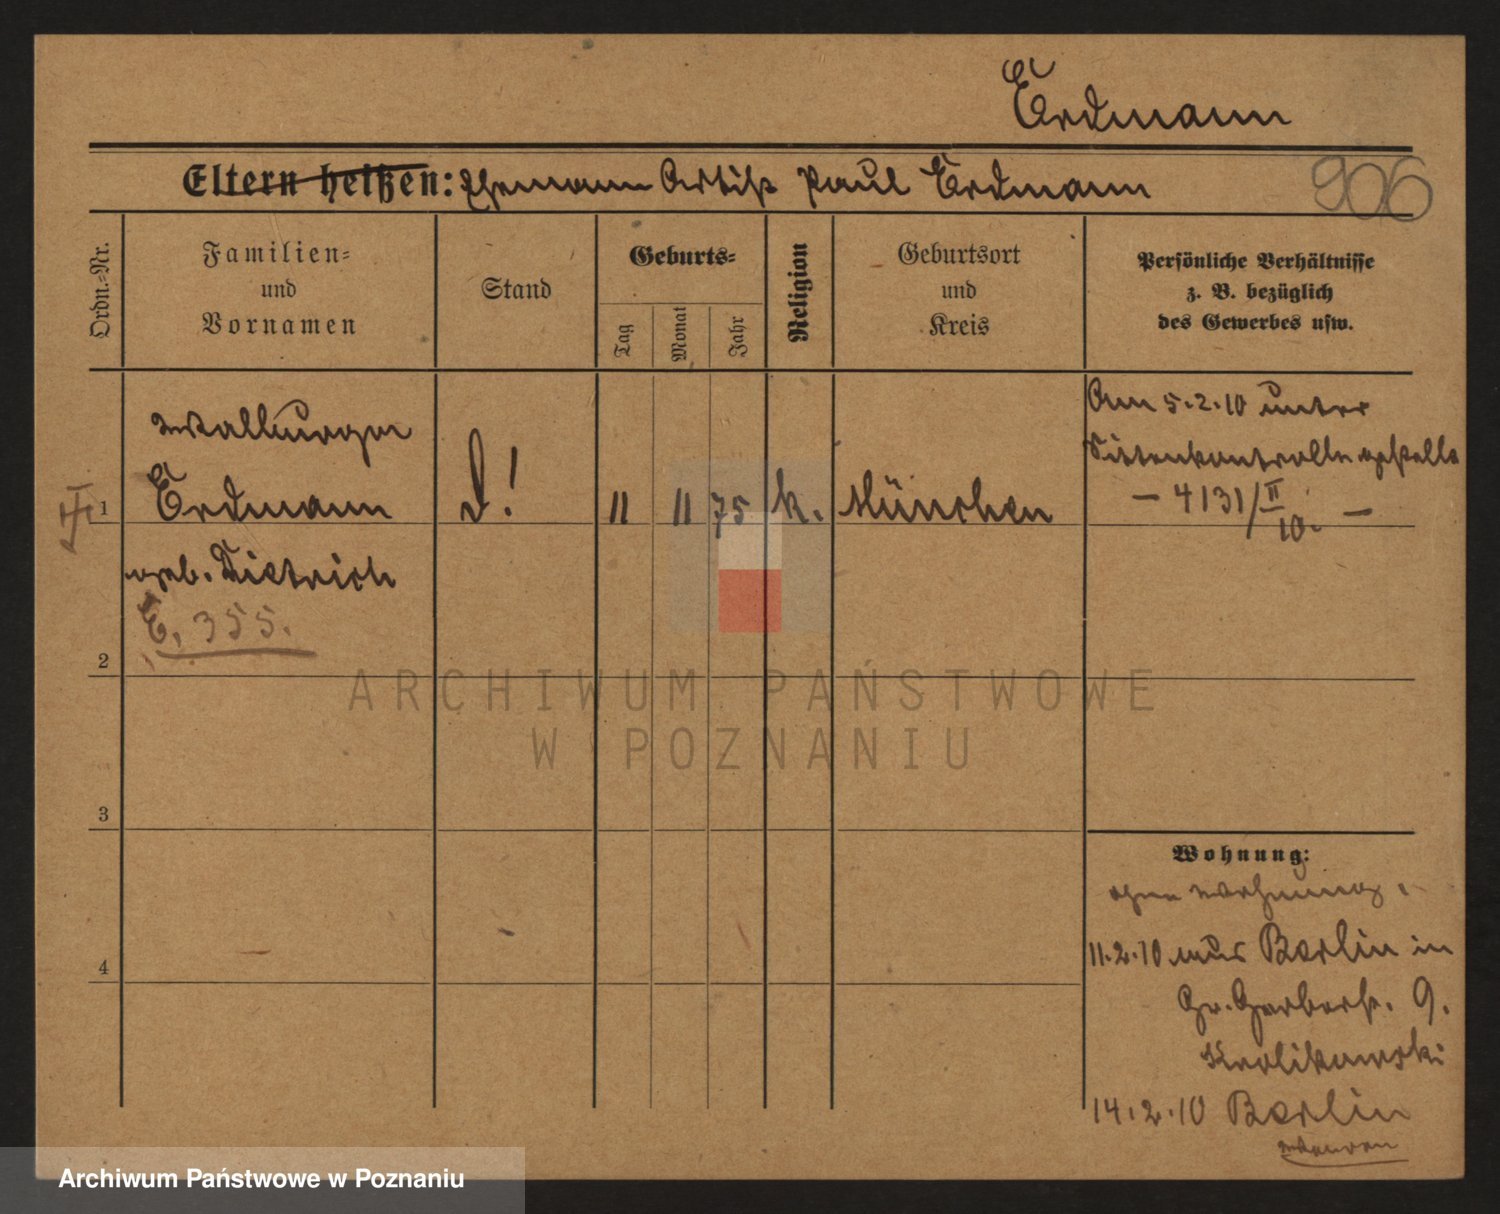 Erdmann
Eltern heißen: Ehemann Artist Paul Erdmann
906
Ordn.-Nr.
Familien-
und
Vornamen
Stand
Geburts-
Tag
Monat
Jahr
Religion
Geburtsort
und
Kreis
Persönliche Verhältnisse
z. B. bezüglich
des Gewerbes usw.
Am 5.2.10 unter
Sittenkontrolle gestellt
- 4131/II 10. -
Walburga
1 Erdmann D! 11 11 75 k. München
geb. Dietrich
E. 355.
2
ARCHIWUM PAŃSTWOWE
W POZNANIU
3
4
Wohnung:
ohne Wohnung.
11.2.10 aus Berlin in
Gr. Gerberst. 9.
Krolikowski
14.2.10 Berlin
Archiwum Państwowe w Poznaniu